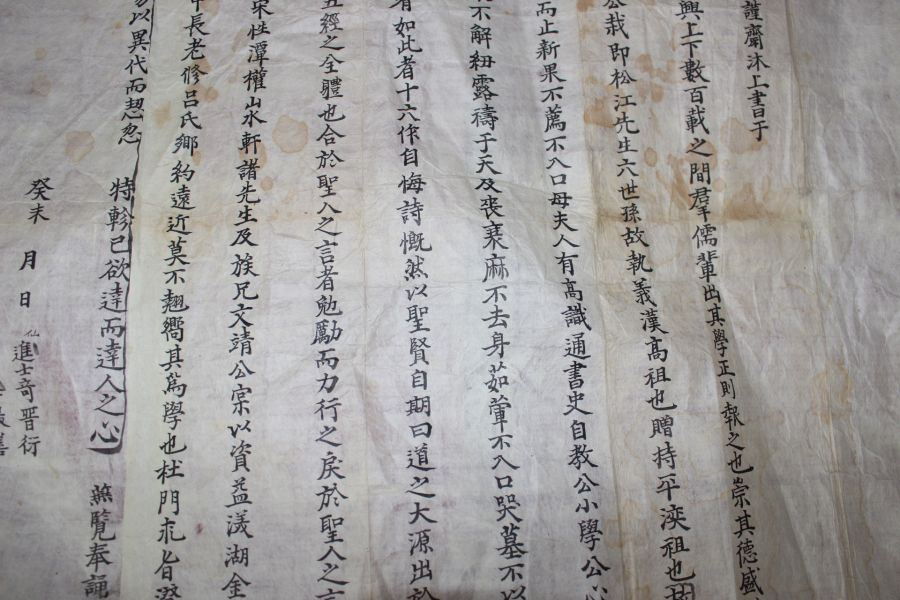 謹齋沐上書百于
興上下數百載之間羣儒輩出其學正則報之也崇其德盛
公栽即松江先生六世孫故執義漢高祖也贈持平渼祖也
而止新果不薦不入口母夫人有高識通書史自教公小學公心
不解紐露禱于天及喪衰麻不去身茹葷不入口哭墓不以
有如此者十六作自悔詩慨然以聖賢自期曰道之大源出於
五經之全體也合於聖人之言者勉勵而力行之戾於聖人之言
宋性潭權山水軒諸先生及族兄文靖公宲以資益渼湖金
中長老修呂氏鄉約遠近莫不翹嚮其爲學也杜門求旨
以異代而恝忽
特軫已欲達而達人之心
無覽奉誦
癸未 月 日
進士奇晋衍